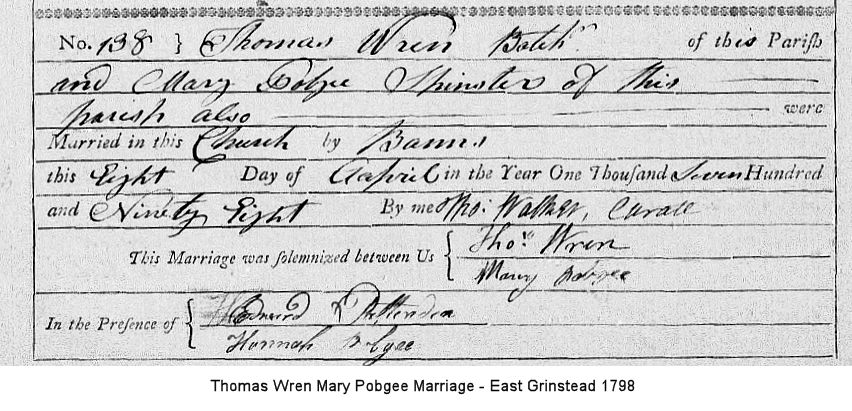 No. 138 } Thomas Wren Batchr of this Pariſh
and Mary Pobgee Spinster of this
parish also were
Married in this Church by Banns
this Eight Day of April in the Year One Thouſand Seven Hundred
and Ninety Eight By me Tho: Walker, Curate
This Marriage was ſolemnized between Us { Thos. Wren
Mary Pobgee
In the Preſence of { Edward
Hannah Pobgee
Thomas Wren Mary Pobgee Marriage - East Grinstead 1798